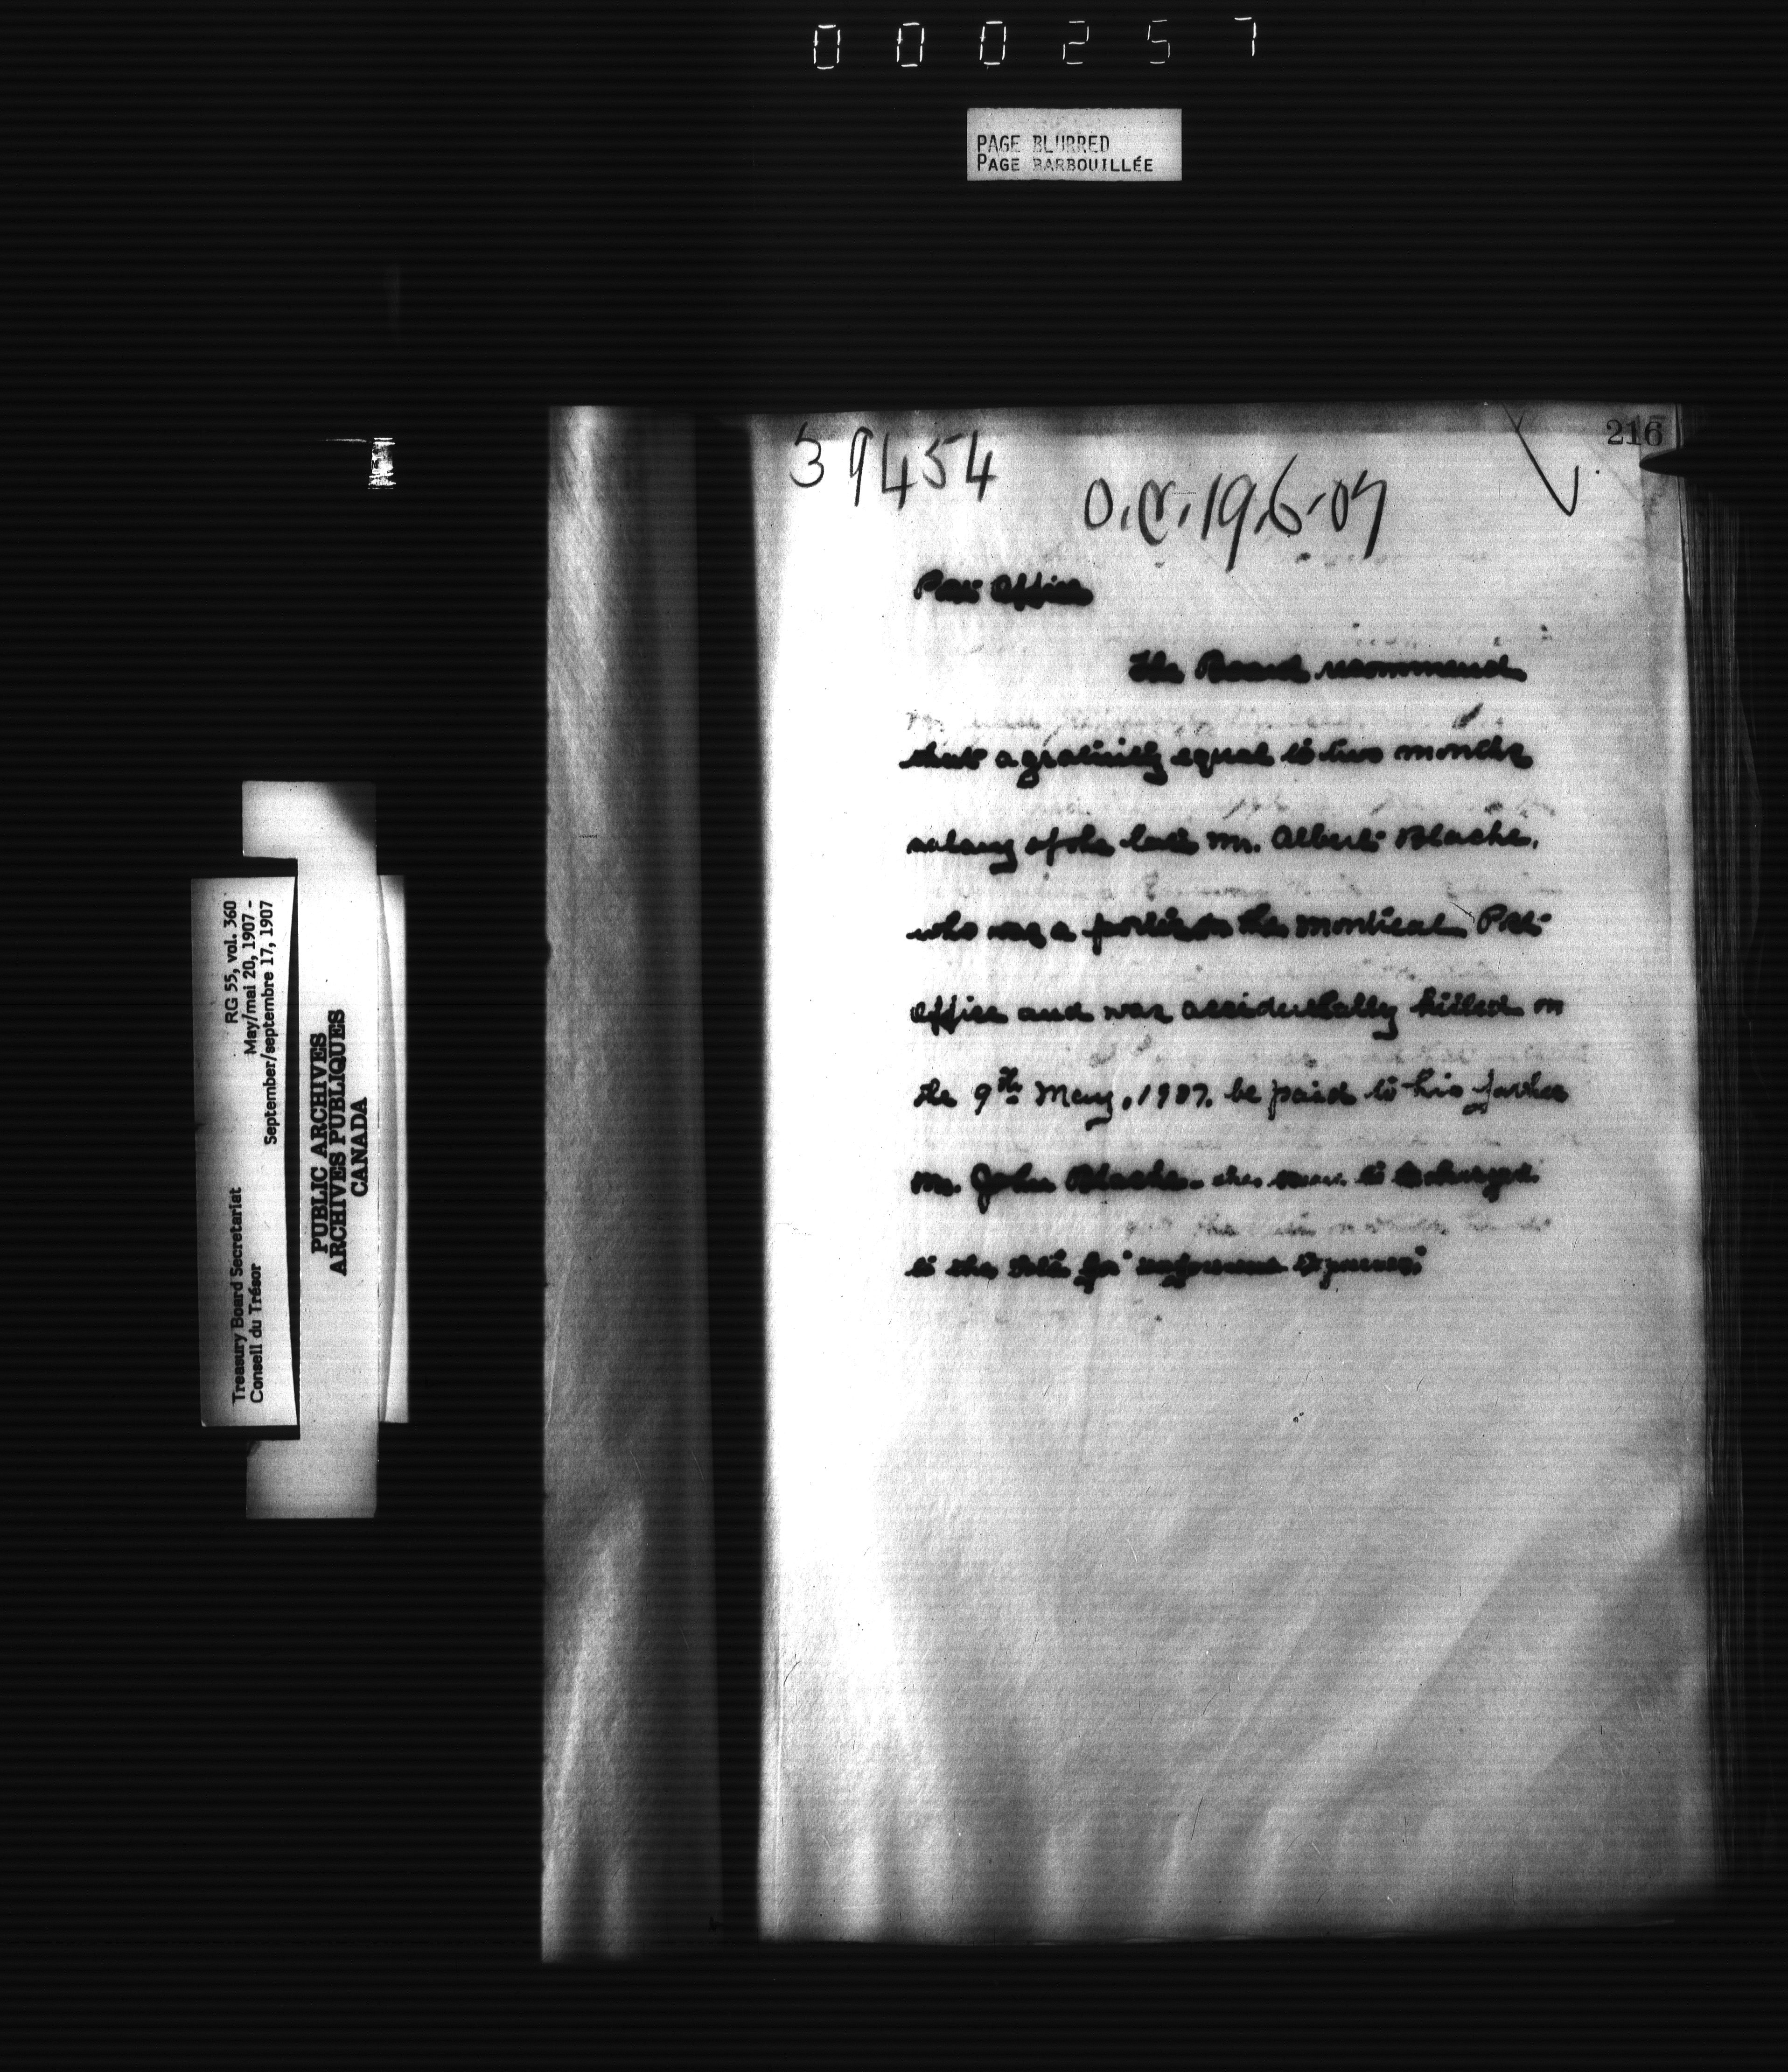 000257
PAGE BLURRED
PAGE BARBOUILLÉE
216
39454
O.C. 19.6.07
Post Office
The Board recommend
that a gratuity equal to two months
salary of the late Mr. Albert Blache,
who was a porter in the Montreal Post
Office and was accidentally killed on
the 9th May, 1907, be paid to his father
Mr. John Blache - the same to be charged
to the Vote for unforeseen Expenses.
RG 55, vol. 360
May/mai 20, 1907 -
September/septembre 17, 1907
Treasury Board Secretariat
Conseil du Trésor
PUBLIC ARCHIVES
ARCHIVES PUBLIQUES
CANADA